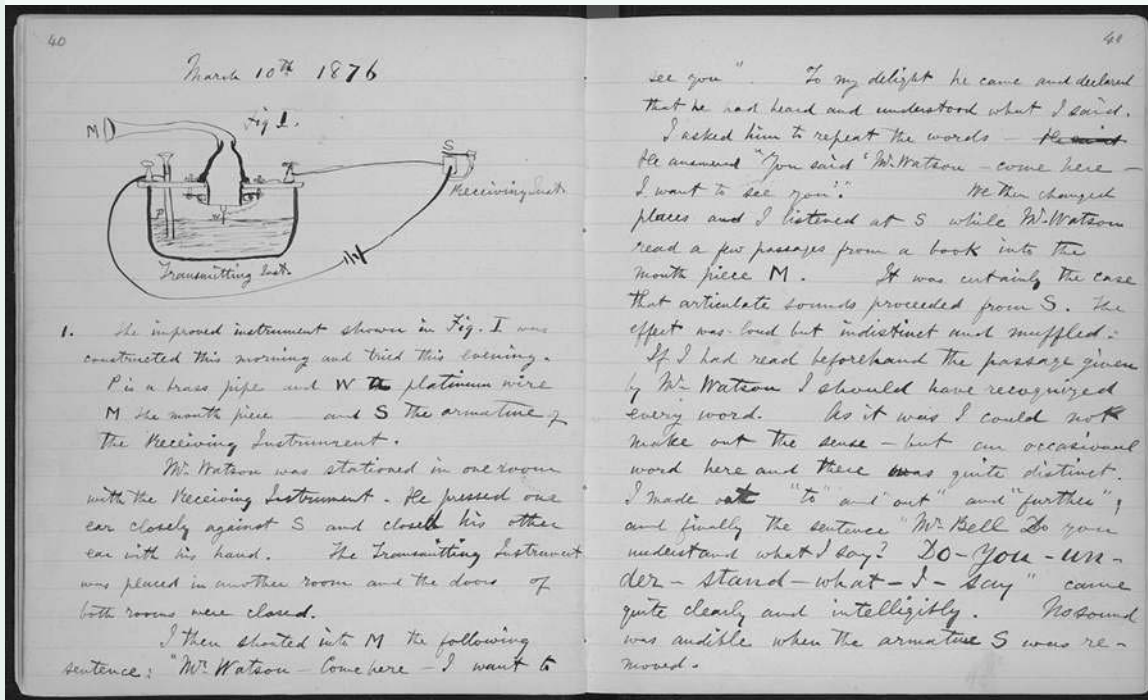 40
March 10th 1876
Fig 1.
M
S
Receiving Inst.
P
W
Transmitting Inst.
1. The improved instrument shown in Fig. I was
constructed this morning and tried this evening.
P is a brass pipe and W the platinum wire
M the mouth piece — and S the armature of
the Receiving Instrument.
Mr. Watson was stationed in one room
with the Receiving Instrument. He pressed one
ear closely against S and closed his other
ear with his hand. The Transmitting Instrument
was placed in another room and the doors of
both rooms were closed.
I then shouted into M the following
sentence: "Mr. Watson — Come here — I want to
40
see you". To my delight he came and declared
that he had heard and understood what I said.
I asked him to repeat the words — He said
He answered "You said 'Mr. Watson — come here —
I want to see you'." We then changed
places and I listened at S while Mr. Watson
read a few passages from a book into the
mouth piece M. It was certainly the case
that articulate sounds proceeded from S. The
effect was loud but indistinct and muffled.
If I had read beforehand the passage given
by Mr. Watson I should have recognized
every word. As it was I could not
make out the sense — but an occasional
word here and there was quite distinct.
I made out "to" and "out" and "further";
and finally the sentence "Mr. Bell Do you
understand what I say? Do — you — un —
der — stand — what — I — say" came
quite clearly and intelligibly. No sound
was audible when the armature S was re-
moved.